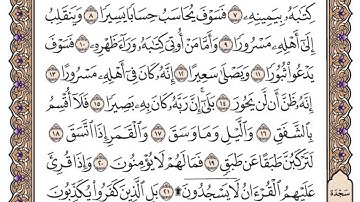 كِتَٰبَهُۥ بِيَمِينِهِۦ ٧ فَسَوْفَ يُحَاسَبُ حِسَابًا يَسِيرًا ٨ وَيَنقَلِبُ
إِلَىٰٓ أَهْلِهِۦ مَسْرُورًا ٩ وَأَمَّا مَنْ أُوتِىَ كِتَٰبَهُۥ وَرَآءَ ظَهْرِهِۦ ١٠ فَسَوْفَ
يَدْعُوا۟ ثُبُورًا ١١ وَيَصْلَىٰ سَعِيرًا ١٢ إِنَّهُۥ كَانَ فِىٓ أَهْلِهِۦ مَسْرُورًا ١٣
إِنَّهُۥ ظَنَّ أَن لَّن يَحُورَ ١٤ بَلَىٰٓ إِنَّ رَبَّهُۥ كَانَ بِهِۦ بَصِيرًا ١٥ فَلَآ أُقْسِمُ
بِٱلشَّفَقِ ١٦ وَٱلَّيْلِ وَمَا وَسَقَ ١٧ وَٱلْقَمَرِ إِذَا ٱتَّسَقَ ١٨
لَتَرْكَبُنَّ طَبَقًا عَن طَبَقٍ ١٩ فَمَا لَهُمْ لَا يُؤْمِنُونَ ٢٠ وَإِذَا قُرِئَ
عَلَيْهِمُ ٱلْقُرْءَانُ لَا يَسْجُدُونَ ۩ ٢١ بَلِ ٱلَّذِينَ كَفَرُوا۟ يُكَذِّبُونَ
سَجْدَة